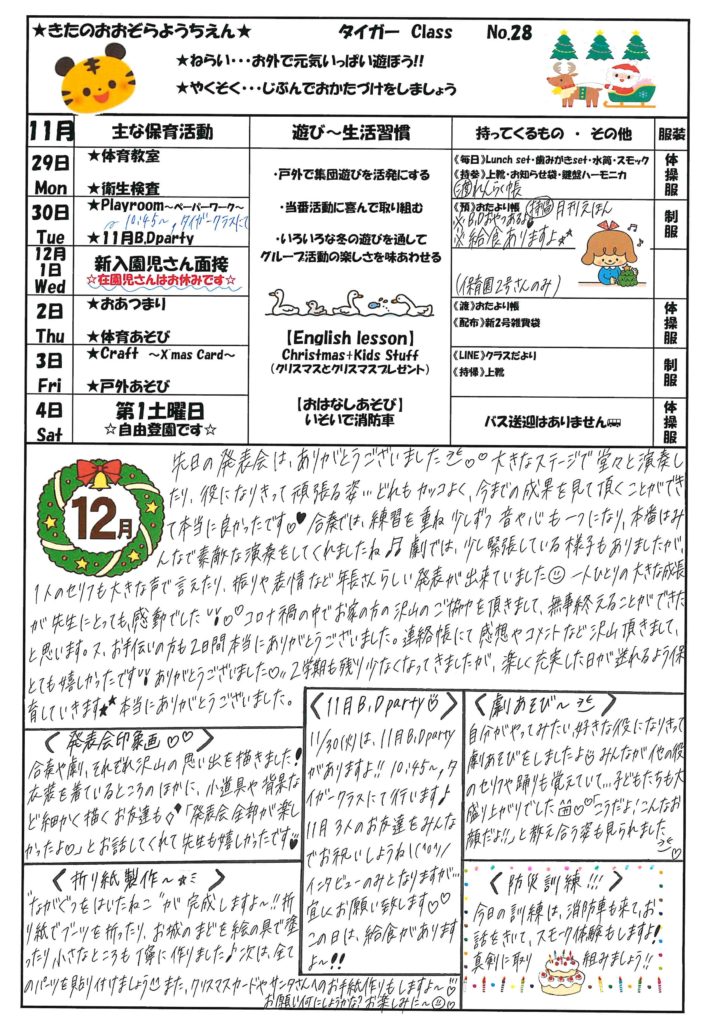 ★きたのおおぞらようちえん★ タイガー Class No.28
★ねらい・・・お外で元気いっぱい遊ぼう!!
★やくそく・・・じぶんでおかたづけをしましょう
11月 主な保育活動 遊び〜生活習慣 持ってくるもの ・ その他 服装
29日
Mon
★体育教室
★衛生検査
《毎日》Lunch set・歯みがきset・水筒・スモック
《持参》上靴・お知らせ袋・鍵盤ハーモニカ
週れんらく帳
体操服
30日
Tue
★Playroom〜ペーパーワーク〜
10:45〜,タイガークラスにて
★11月B,Dparty
《預》おたより帳 持帰 月刊えほん
※B,Dおやつあるよ
※給食ありますよ
制服
12月
1日
Wed
新入園児さん面接
☆在園児さんはお休みです☆
(保育園2号さんのみ)
2日
Thu
★おあつまり
★体育あそび
《渡》おたより帳
《配布》新2号雑費袋
体操服
3日
Fri
★Craft 〜X'mas Card〜
★戸外あそび
《LINE》クラスだより
《持帰》上靴
制服
4日
Sat
第1土曜日
☆自由登園です☆
バス送迎はありません
体操服
・戸外で集団遊びを活発にする
・当番活動に喜んで取り組む
・いろいろな冬の遊びを通して
グループ活動の楽しさを味あわせる
【English lesson】
Christmas+Kids Stuff
(クリスマスとクリスマスプレゼント)
【おはなしあそび】
いそいで消防車
12月
先日の発表会は、ありがとうございました♡♡ 大きなステージで堂々と演奏し
たり、役になりきって頑張る姿…どれもカッコよく、今までの成果を見て頂くことができ
て本当に良かったです♡♥ 合奏では、練習を重ね少しずつ音や心も一つになり、本番はみ
んなで素敵な演奏をしてくれましたね♫ 劇では、少し緊張している様子もありましたが、
1人のセリフも大きな声で言えたり、振りや表情など年長さんらしい発表が出来ていました☺ 一人ひとりの大きな成長
が先生にとっても、感動でした!!♡♡ コロナ禍の中でお家の方の沢山のご協力を頂きまして、無事終えることができた
と思います。又、お手伝いの方も2日間本当にありがとうございました。連絡帳にて感想やコメントなど沢山頂きまして、
とても嬉しかったです!!ありがとうございました♡。2学期も残り少なくなってきましたが、楽しく充実した日が送れるよう保
育していきます★★本当にありがとうございました。
〈 発表会印象画♡♡ 〉
合奏や劇、それぞれ沢山の思い出を描きました!
衣装を着ているところのほかに、小道具や背景な
ど細かく描くお友達も◇「発表会全部が楽し
かったよ♡」とお話してくれて先生も嬉しかったです
〈 折り紙製作〜☆ 〉
"ながぐつをはいたねこ"が完成しますよ〜!!折
り紙でブーツを折ったり、お城のまどを絵の具で塗
ったり小さなところも丁寧に作りました♪次は、全て
のパーツを貼り付けましょう また、クリスマスカードやサンタさんへのお手紙作りもしますよ〜♡
お願い何にしようかな?お楽しみに〜☺♡
〈11月B,Dparty〉
11/30(火)は、11月B,Dparty
がありますよ!! 10:45〜,タ
イガークラスにて行います♪
11月3人のお友達をみんな
でお祝いしようね!(^o^)/
インタビューのみとなりますが…
宜しくお願い致します♡♡
この日は、給食があります
よ〜!!
〈劇あそび〜〉
自分がやってみたい、好きな役になりきって
劇あそびをしましたよ みんなが他の役
のセリフや踊りも覚えていて…子どもたちも大
盛り上がりでした♡♥「こうだよ!こんなお
顔だよ!!」と教え合う姿も見られました
〈防災訓練!!!〉
今日の訓練は、消防車も来て、お
話をきいて、スモーク体験もしますよ!
真剣に取り組みましょう!!